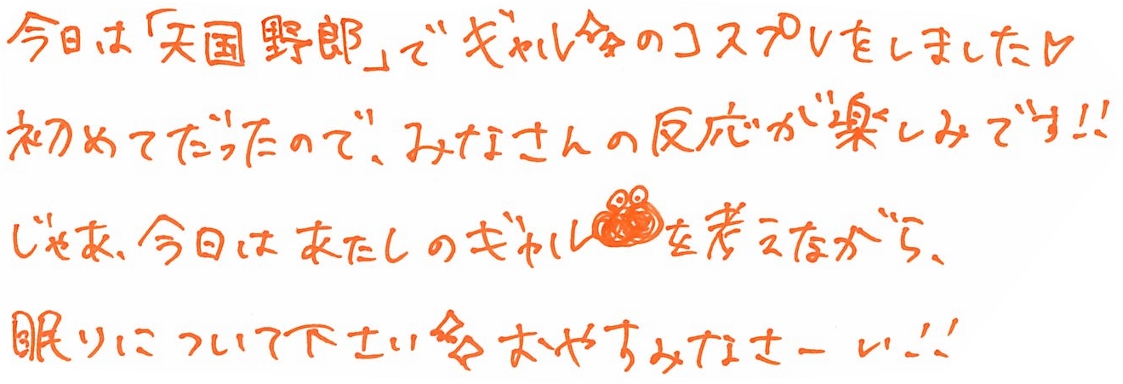 今日は「天国野郎」でギャル☆☆のコスプレをしました♡
初めてだったので、みなさんの反応が楽しみです!!
じゃあ、今日はあたしのギャルを考えながら、
眠りについて下さい☆☆おやすみなさーい!!